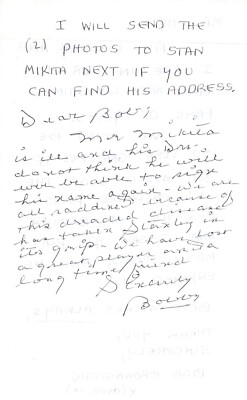 I WILL SEND THE
(2) PHOTOS TO STAN
MIKITA NEXT IF YOU
CAN FIND HIS ADDRESS.
Dear Bob;
Mr Mikita
is ill and his Drs.
do not think he will
ever be able to sign
his name again - we are
all saddened because of
this dreaded disease
has taken Stanley in
its grip - we have lost
a great player and a
long time friend
Sincerely